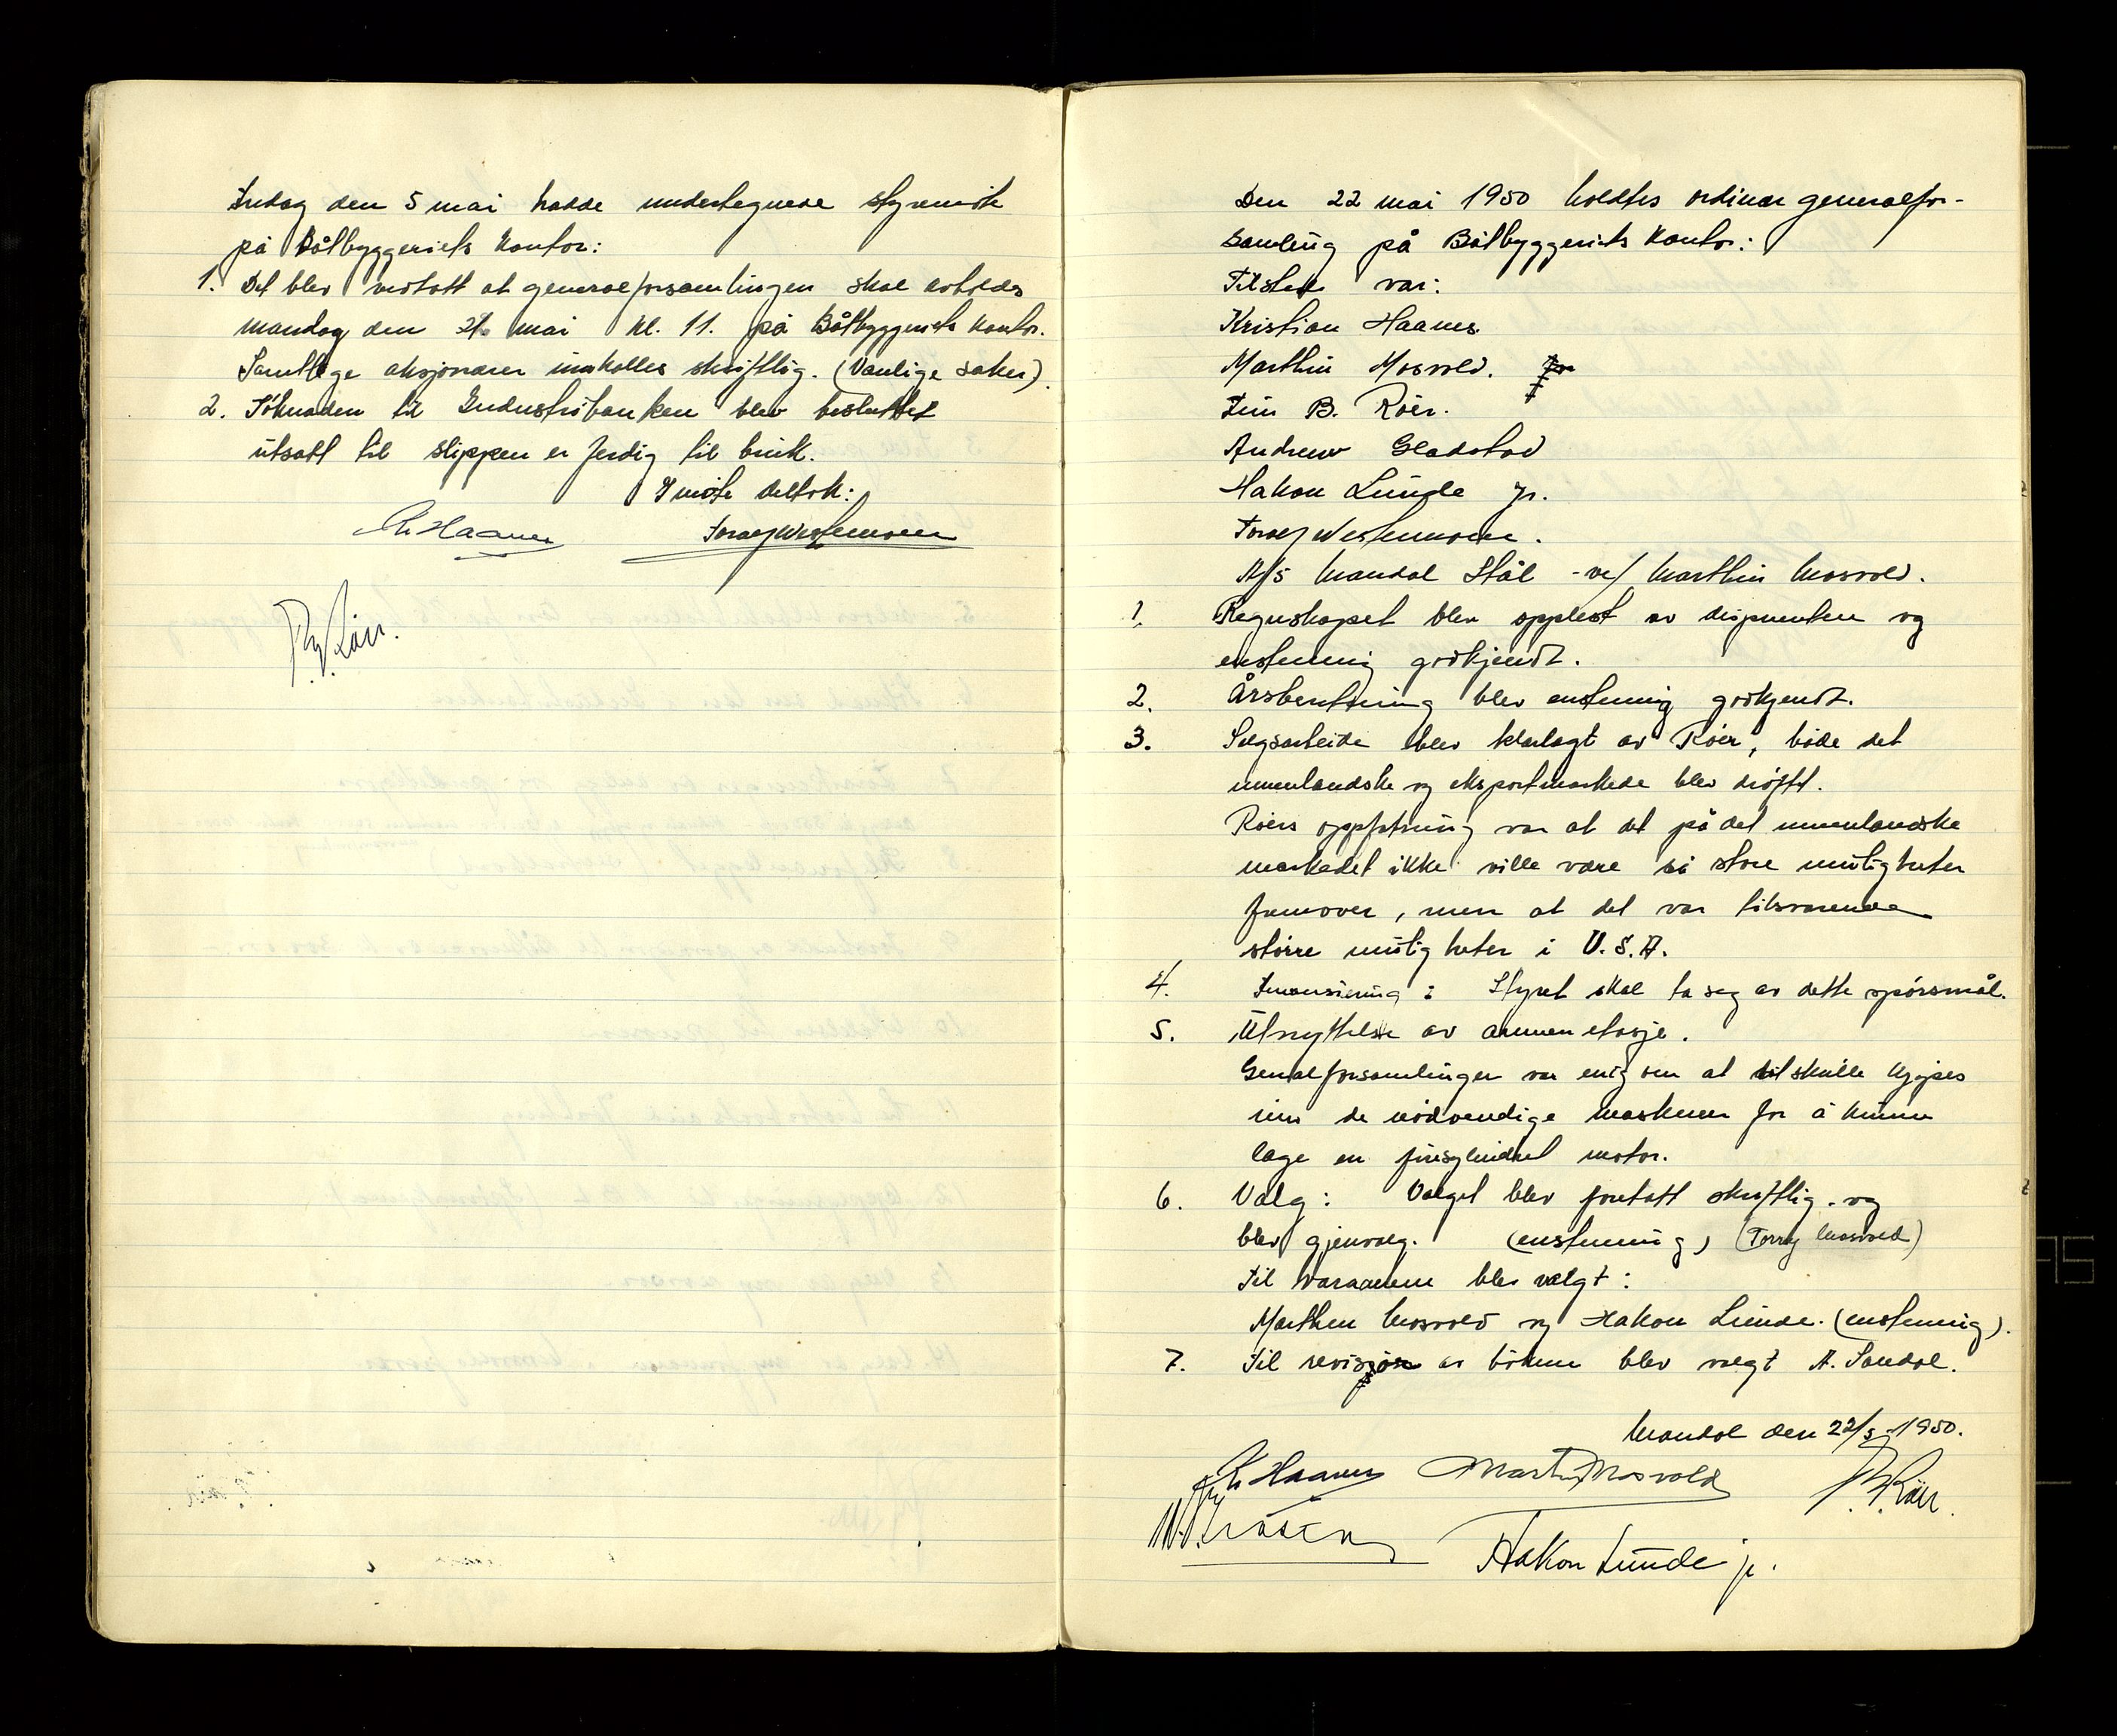 Fredag den 5 mai hadde undertegnede styremöte
på Båtbyggeriets Kontor:
1. Det blev vedtatt at generalforsamlingen skal avholdes
mandag den mai kl. 11. på Båtbyggeriets Kontor.
Samtlige aksjonærer innkalles skriftlig. (Vanlige saker).
2. Söknaden til Industribanken blev besluttet
utsatt til slippen er ferdig til bruk.
I möte deltok:
Kr Haanes Toralf Westermoen
Röer.
Den 22 mai 1950 holdtes ordinær generalfor-
samling på Båtbyggeriets Kontor:
Tilstede var:
Kristian Haanes
Marthin Mosvold.
Finn B. Röer.
Andrew Gladstad
Hakon Lunde jr.
Toralf Westermoen.
A/S Mandal Stål - ve/ Marthin Mosvold.
1. Regnskapet blev opplest av disponenten og
enstemmig godkjendt.
2. Årsberetning blev enstemmig godkjendt.
3. Salgsarbeide blev klarlagt av Röer, både det
innenlandske og eksportmarkede blev dröftet.
Röers oppfatning var at det på det innenlandske
markedet ikke ville være så store muligheter
fremover, men at det var tilsvarende
större muligheter i U.S.A.
4. Finansiering: Styret skal ta seg av dette spörsmål.
5. Utnyttelse av annen etasje.
Generalforsamlingen var enig om at det skulle kjöpes
inn de nödvendige maskiner for å kunne
lage en firesylindret motor.
6. Valg: Valget blev foretatt skriftlig. og
blev gjenvalg. (enstemmig) (Torrey Mosvold)
Til varamenn blev valgt:
Marthin Mosvold og Hakon Lunde. (enstemmig).
7. Til revisjon av bökene blev valgt A. Sandal.
Mandal den 22/5-1950.
Kr Haanes Martin Mosvold Röer.
Hakon Lunde jr.